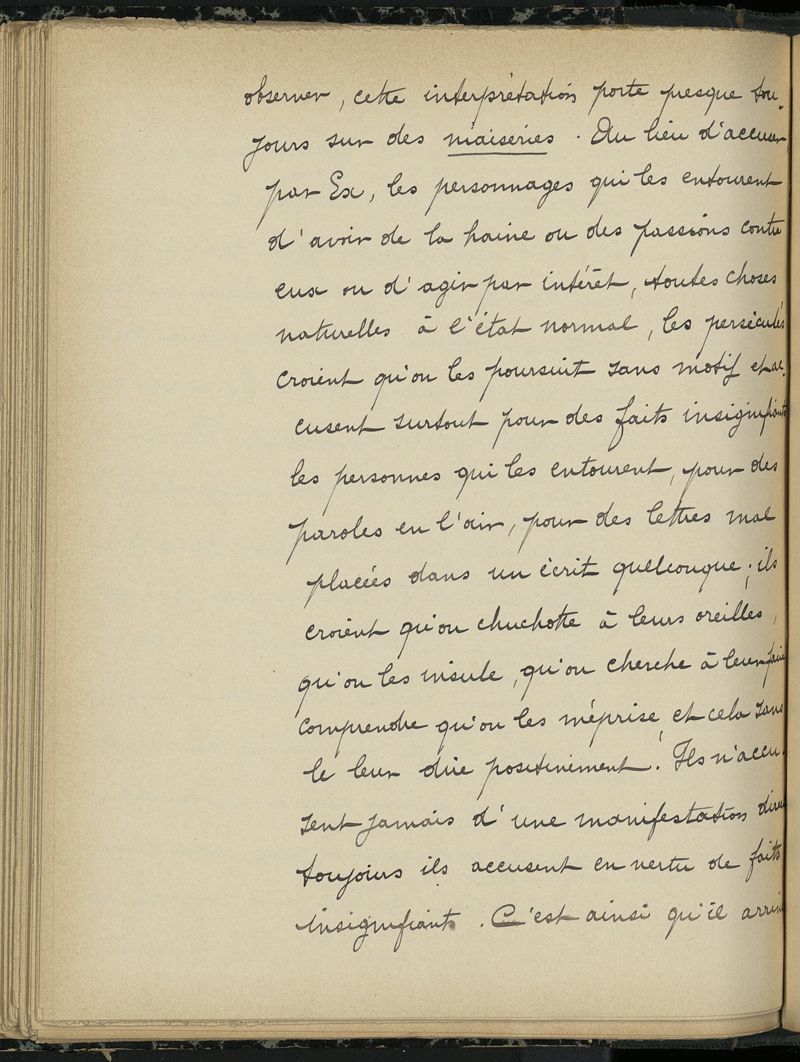 observer, cette interprétation porte presque tou-
jours sur des niaiseries. Au lieu d'accuser,
par Ex, les personnages qui les entourent
d'avoir de la haine ou des passions contre
eux ou d'agir par intérêt, toutes choses
naturelles à l'état normal, les persécutés
croient qu'on les poursuit sans motif et ac-
cusent surtout pour des faits insignifiants
les personnes qui les entourent, pour des
paroles en l'air, pour des lettres mal
placées dans un écrit quelconque; ils
croient qu'on chuchotte à leurs oreilles,
qu'on les insulte, qu'on cherche à leur faire
comprendre qu'on les méprise, et cela sans
le leur dire positivement. Ils n'accu-
sent jamais d'une manifestation dire
toujours ils accusent en vertu de faits
insignifiants. C'est ainsi qu'il arrive